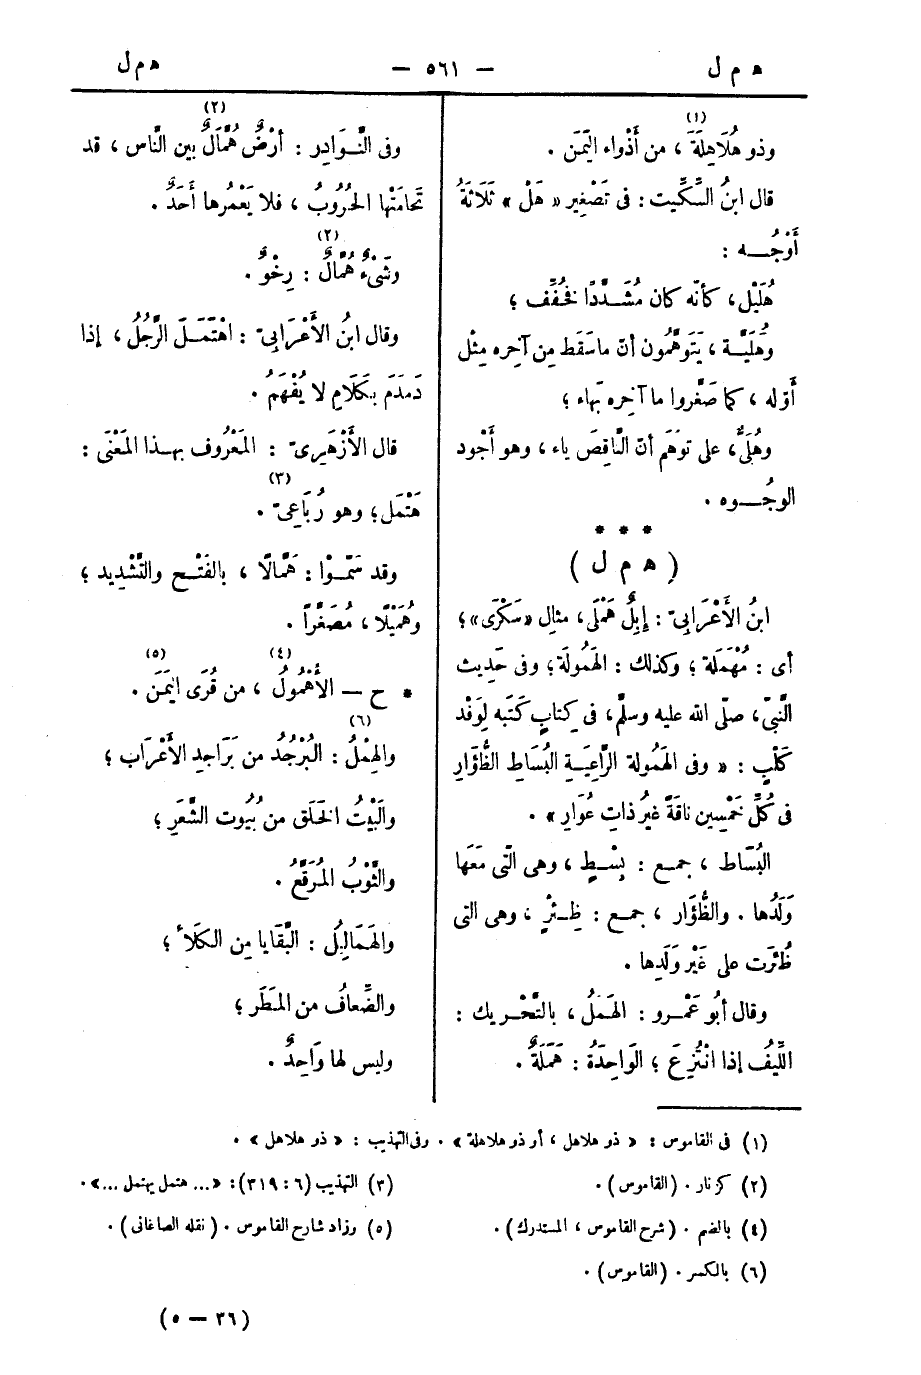 ه م ل — ٥٦١ — ه م ل
وذو هُلَاهِلَةَ (١) ، من أَذْواء اليَمَن .
قال ابنُ السِّكِّيت : فى تَصْغِير « هَلْ » ثَلَاثَةُ
أَوْجُـــه :
هُلَيْل، كأنّه كان مُشَدَّدًا فخُفِّف ؛
وهُلَيَّة ، يَتَوهَّمُون أنّ ماسَقَط مِن آخِره مِثْل
أَوّله ، كما صَغَّروا ما آخِره بهاء ؛
وهُلَىٌّ، على توَهّم أنّ النَّاقِصَ ياء ، وهو أَجْود
الوجُـــوه .
* * *
( ه م ل )
ابنُ الأَعْرَابِىّ : إِبِلٌ هَمْلَى، مثالِ «سَكْرَى» ؛
أى : مُهْمَلَة ؛ وكذلك : الهَمُولَة ؛ وفى حَدِيث
النَّبىّ، صلّى الله عليه وسلَّم، فى كِتابٍ كَتَبه لِوَفْد
كَلْبٍ : « وفى الهَمُولة الرَّاعِيَـةِ البُسَاطِ الظُّؤَارِ
فى كُلِّ خَمْسِين ناقَةً غيرُ ذاتِ عُوَارِ » .
البُسّاط ، جمـع : بِسْـطٍ ، وهى الّتى مَعَها
وَلَدُها . والظُّؤَار ، جمـع : ظِــئْرٍ ، وهى التى
ظُئرَت على غَيْر وَلَدِها .
وقال أبُو عَمْــرو : الهَمَلُ ، بالتَّحْريك :
اللِّيفُ إذا انْتُزِعَ ؛ الوَاحِدَةُ : هَمَلَةٌ .
وفى النَّوَادِر : أَرْضٌ هُمَّالٌ (٢) بين النَّاس ، قد
تَحَامَتْها الحُرُوبُ ، فلا يَعْمُرها أَحَدٌ .
وشَىْءٌ هُمَّالٌ (٢) : رِخْوٌ .
وقال ابنُ الأَعْرَابِىّ : اهْتَمَـلَ الرَّجُلُ ، إذا
دَمدَم بكَلَامٍ لا يُفْهَمُ .
قال الأَزْهَرِىّ : المَعْرُوف بهـذا المَعْنَى :
هَتْمَل (٣)؛ وهو رُبَاعِىّ .
وقد سَمَّـوْا : هَمَّالًا ، بالفَتْـح والتَّشْدِيد ؛
وهُمَيْلًا ، مُصَغَّرًا .
* ح — الأُهْمُولُ (٤) ، من قُرَى اليَمَنَ (٥) .
والهِمْلُ (٦) : البُرْجُدُ من بَرَاجِدِ الأَعْرَاب ؛
والبَيْتُ الخَلَق من بُيُوت الشَّعَرِ ؛
والثَّوْبُ المُرَقَّعُ .
والهَمَالِيلُ : البَقَايا مِن الكَلَأ ؛
والضِّعافُ من المَطَر ؛
وليس لها وَاحِدٌ .
(١) فى القاموس : « ذو هلاهل ، أو ذو هلاهلة » . وفى التهذيب : « ذو هلاهل » .
(٢) كزنار . (القاموس) .
(٣) التهذيب (٦ : ٣١٩) : « ... هتمل يهتمل ... » .
(٤) بالضم . (شرح القاموس ، المستدرك) .
(٥) وزاد شارح القاموس . (نقله الصاغانى) .
(٦) بالكسر . (القاموس) .
(٣٦ — ٥)